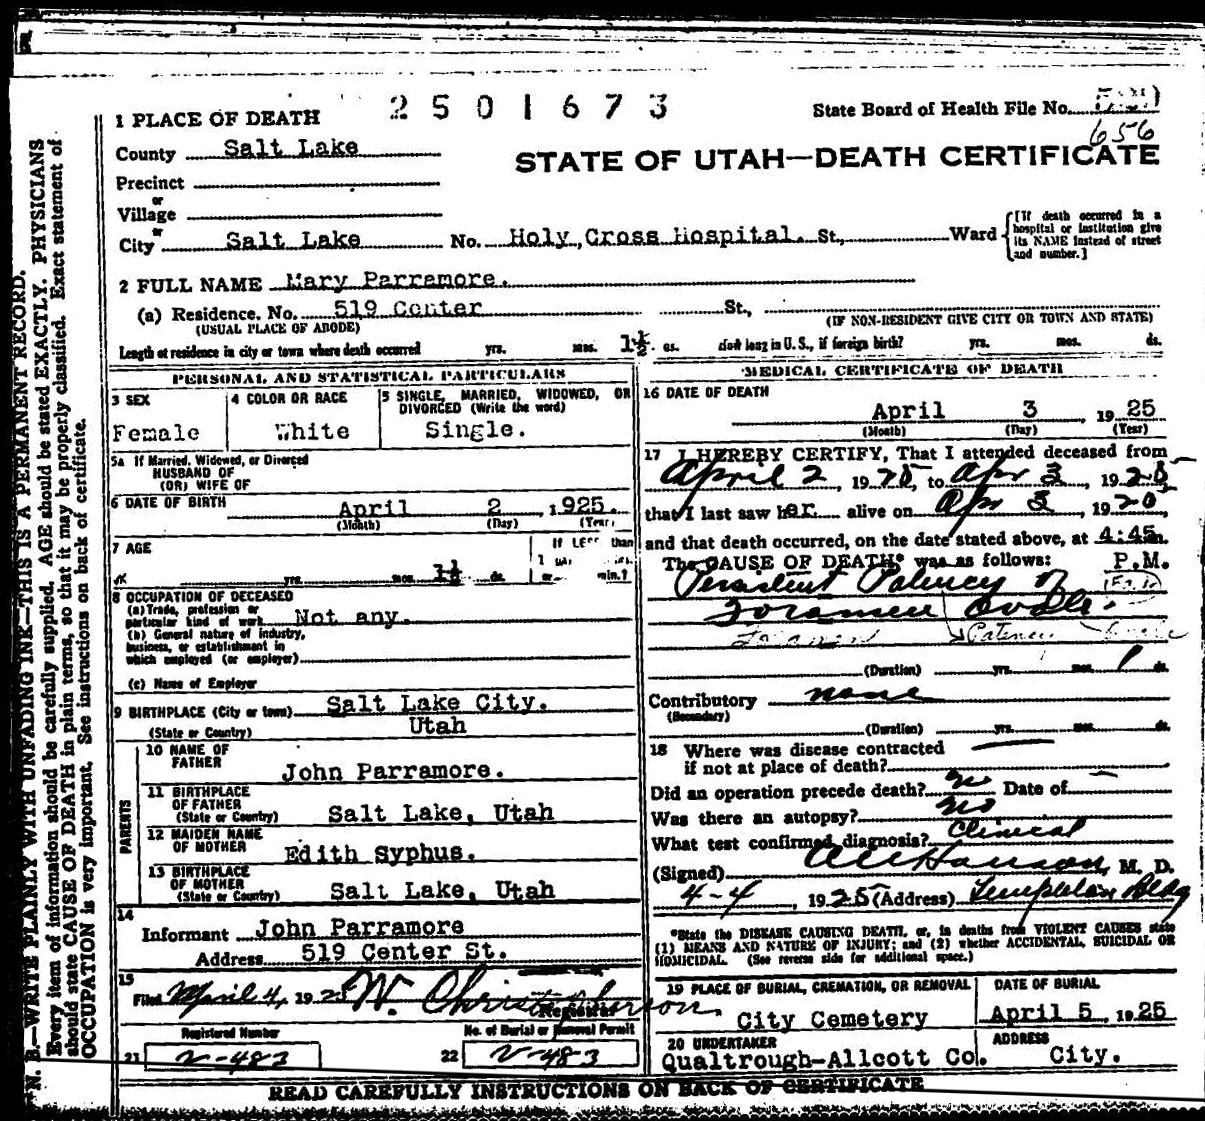 2501673
State Board of Health File No.
656
STATE OF UTAH—DEATH CERTIFICATE
1 PLACE OF DEATH
County Salt Lake
Precinct
or
Village
or
City Salt Lake No. Holy Cross Hospital. St., Ward
[If death occurred in a hospital or institution give its NAME instead of street and number.]
2 FULL NAME Mary Parramore.
(a) Residence. No. 519 Center St.,
(USUAL PLACE OF ABODE) (IF NON-RESIDENT GIVE CITY OR TOWN AND STATE)
Length of residence in city or town where death occurred yrs. mos. 1½ ds. How long in U. S., if foreign birth? yrs. mos. ds.
PERSONAL AND STATISTICAL PARTICULARS
3 SEX
Female
4 COLOR OR RACE
White
5 SINGLE, MARRIED, WIDOWED, OR
DIVORCED (Write the word)
Single.
5a If Married, Widowed, or Divorced
HUSBAND OF
(OR) WIFE OF
6 DATE OF BIRTH April 2 , 1925.
(Month) (Day) (Year)
7 AGE
If LESS than
yrs. mos. 1½ ds. or min.?
8 OCCUPATION OF DECEASED
(a) Trade, profession or
particular kind of work Not any.
(b) General nature of industry,
business, or establishment in
which employed (or employer)
(c) Name of Employer
9 BIRTHPLACE (City or town) Salt Lake City.
(State or Country) Utah
PARENTS
10 NAME OF
FATHER
John Parramore.
11 BIRTHPLACE
OF FATHER
(State or Country) Salt Lake, Utah
12 MAIDEN NAME
OF MOTHER
Edith Syphus.
13 BIRTHPLACE
OF MOTHER
(State or Country) Salt Lake, Utah
14
Informant John Parramore
Address 519 Center St.
15
Filed April 4, 1925 W. Christopherson
Registrar
Registered Number No. of Burial or Removal Permit
21 V-483 22 V-483
MEDICAL CERTIFICATE OF DEATH
16 DATE OF DEATH
April 3 1925
(Month) (Day) (Year)
17 I HEREBY CERTIFY, That I attended deceased from
April 2, 1925, to Apr 3, 1925
that I last saw her alive on Apr 3, 1925,
and that death occurred, on the date stated above, at 4:45 m.
The CAUSE OF DEATH* was as follows: P.M.
Persistent Patency of
Foramen Ovale.
Foramen Patency Ovale
(Duration) yrs. mos. 1 ds.
Contributory none
(Secondary)
(Duration) yrs. mos. ds.
18 Where was disease contracted
if not at place of death?
Did an operation precede death? no Date of –
Was there an autopsy? no
What test confirmed diagnosis? Clinical
(Signed) , M. D.
4-4, 1925 (Address) Templeton Bldg
*State the DISEASE CAUSING DEATH, or, in deaths from VIOLENT CAUSES state
(1) MEANS AND NATURE OF INJURY; and (2) whether ACCIDENTAL, SUICIDAL OR
HOMICIDAL. (See reverse side for additional space.)
19 PLACE OF BURIAL, CREMATION, OR REMOVAL
City Cemetery
DATE OF BURIAL
April 5, 1925
20 UNDERTAKER
Qualtrough-Allcott Co.
ADDRESS
City.
READ CAREFULLY INSTRUCTIONS ON BACK OF CERTIFICATE
N. B.—WRITE PLAINLY WITH UNFADING INK—THIS IS A PERMANENT RECORD.
Every item of information should be carefully supplied. AGE should be stated EXACTLY. PHYSICIANS
should state CAUSE OF DEATH in plain terms, so that it may be properly classified. Exact statement of
OCCUPATION is very important. See instructions on back of certificate.